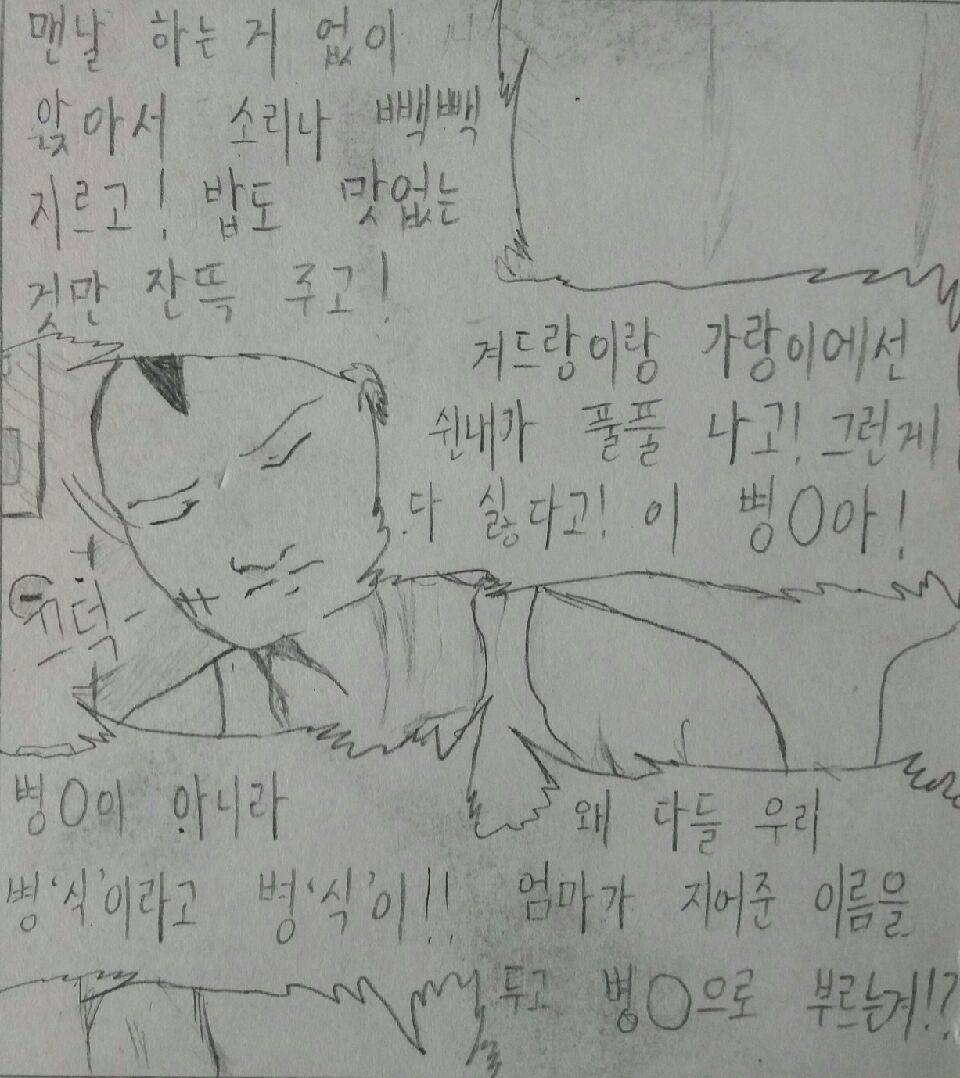 맨날 하는 거 없이
앚아서 소리나 빽빽
지르고! 밥도 맛없는
것만 잔뜩 주고!
겨드랑이랑 가랑이에선
쉰내가 풀풀 나고! 그런게
다 싫다고! 이 병○아!
끄덕
병○이 아니라
병'식'이라고 병'식'이!!
왜 다들 우리
엄마가 지어준 이름을
두고 병○으로 부르는게!?